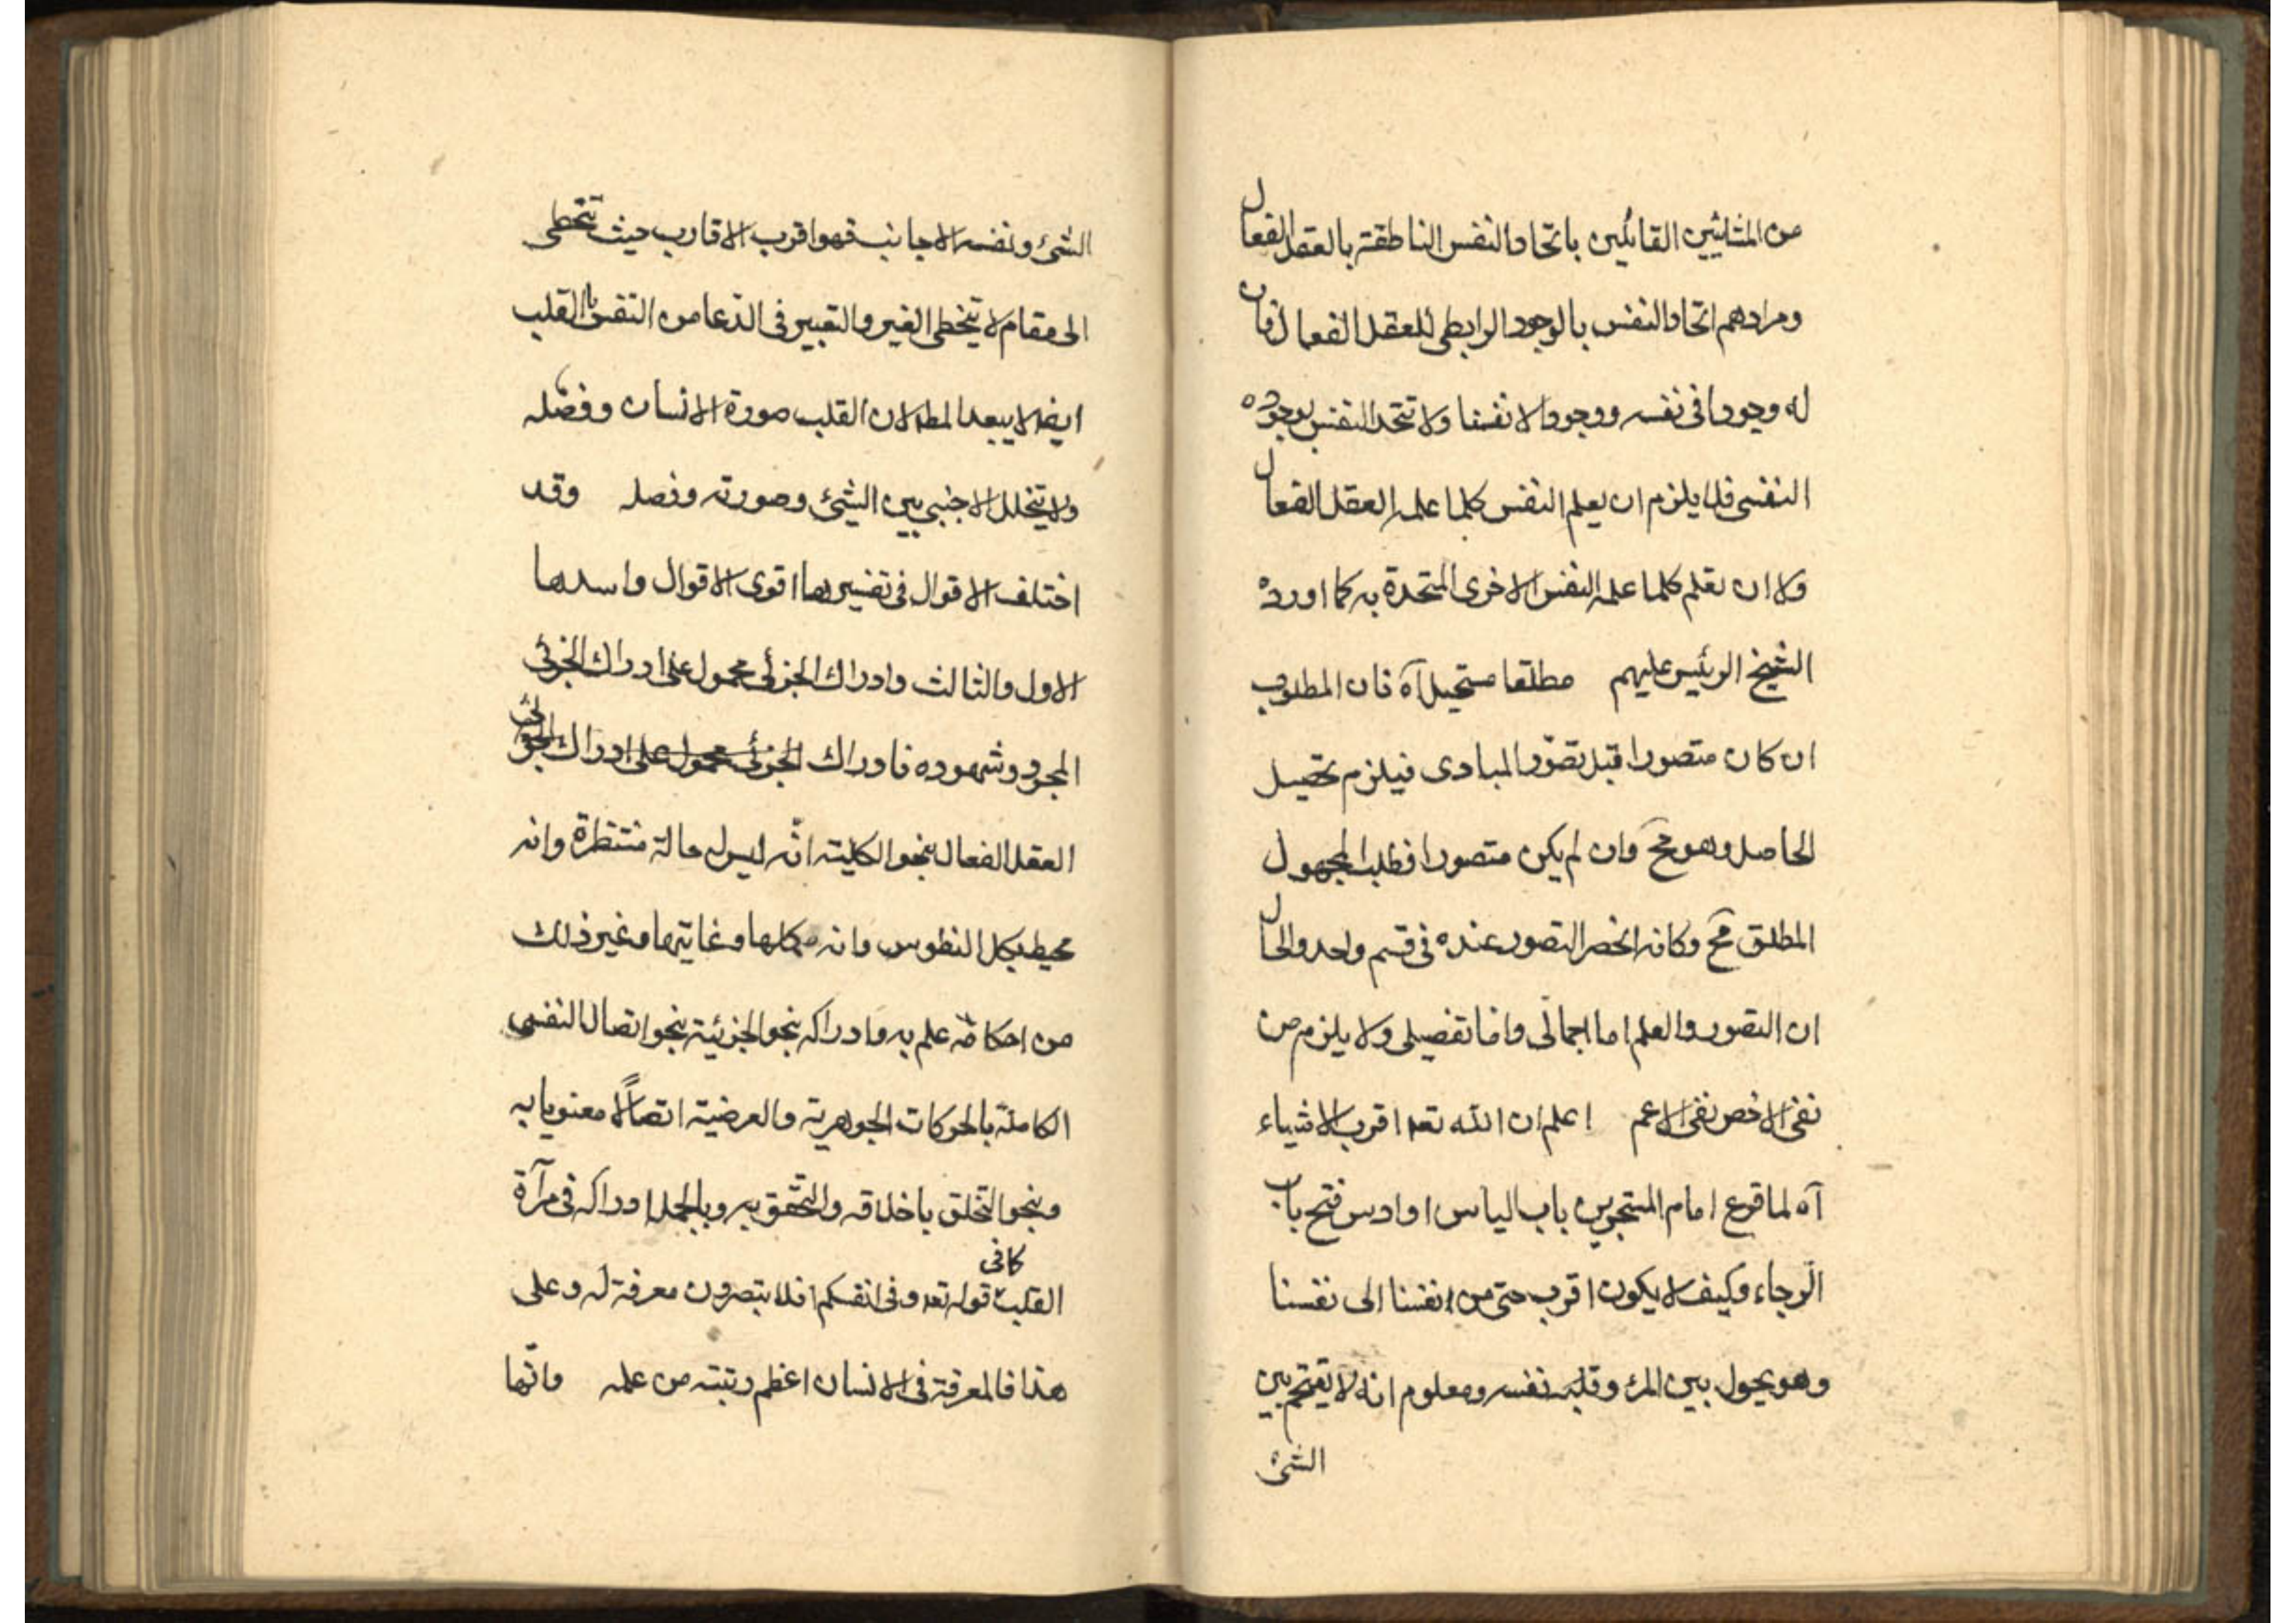 من المشائيين القائلين باتحاد النفس الناطقة بالعقل الفعال
ومرادهم اتحاد النفس بالوجود الرابطى للعقل الفعال فان
له وجودا فى نفسه ووجودا لانفسنا ولا تتحد النفس بوجوده
النفسى فلا يلزم ان يعلم النفس كلما علمه العقل الفعال
ولا ان تعلم كلما علمه النفس الاخرى المتحدة به كما اورده
الشيخ الرئيس عليهم مطلقا مستحيل آه فان المطلوب
ان كان متصورا قبل تصوّر المبادى فيلزم تحصيل
الحاصل وهو مح وان لم يكن متصورا فطلب المجهول
المطلق مح وكانه انحصر التصور عنده فى قسم واحد والحال
ان التصور والعلم اما اجمالى واما تفصيلى ولا يلزم من
نفى الاخص نفى الاعم اعلم ان الله تعه اقرب الاشياء
آه لما قرع امام المتجرين باب الياس اوادس فتح باب
الرجاء وكيف لا يكون اقرب حتى من انفسنا الى نفسنا
وهو يحول بين المرء وقلبه نفسه ومعلوم انه لا يقتحم بين
الشئ
الشئ ونفسه الاجانب فهو اقرب الاقارب حيث تتخطى
الى مقام لا يتخطى الغير والتعبير فى الدّعا من النفس بالقلب
ايضا لا يبعد المط لان القلب صورة الانسان وفصله
ولا يتخلل الاجنبى بين الشئ وصورته وفصله وقد
اختلف الاقوال فى تفسيرها اقوى الاقوال واسدها
الاول والثالث وادراك الجزئى محمول على ادراك الجزئى
المجرد وشهوده فادراك الجزئى محمول على ادراك الجزئى
العقل الفعال بنحو الكلية انّه ليس له حالة منتظرة وانه
محيط بكل النفوس وانه مكملها وغايتها وغير ذلك
من احكامه علم به وادراكه بنحو الجزئية بنحو اتصال النفس
الكاملة بالحركات الجوهرية والعرضية اتصالاً معنويا به
وبنحو التخلق باخلاقه والتحقق به وبالجملة ادراكه فى مرآة
القلب كافى قوله تعه وفى انفسكم افلا تبصرون معرفة له وعلى
هذا فالمعرفة فى الانسان اعظم رتبته من علمه وانّها